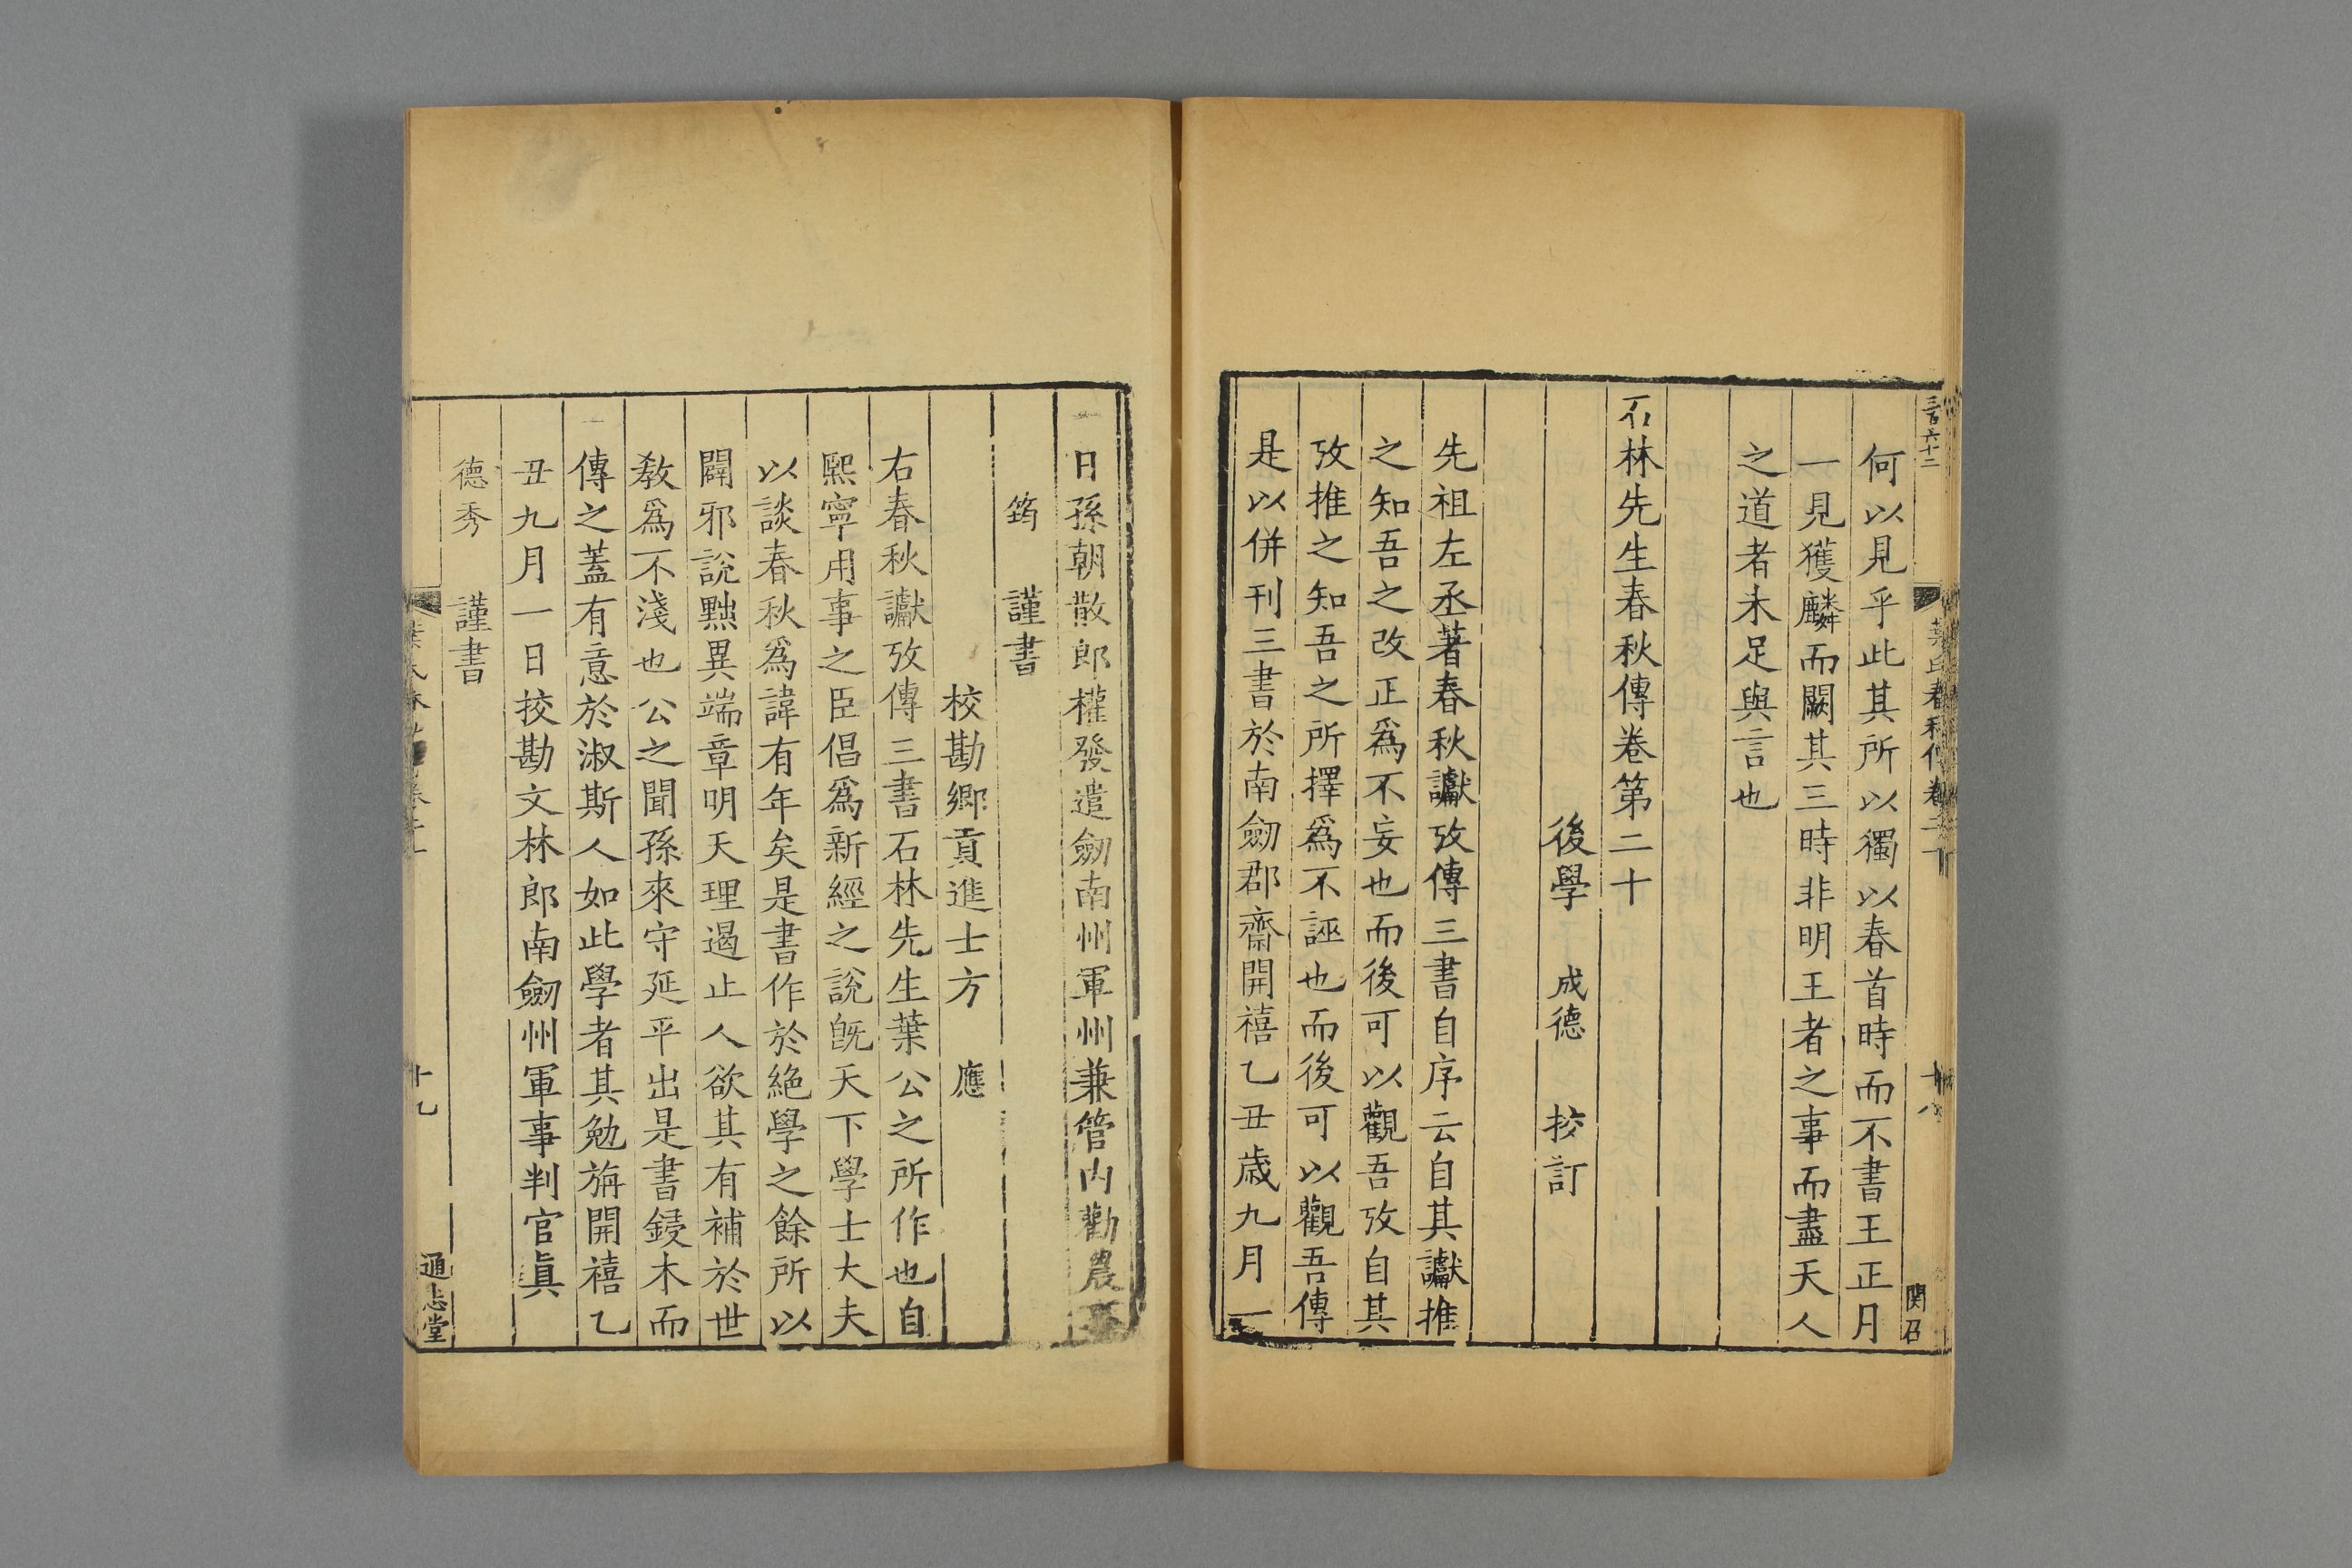 三百六十二
何以見乎此其所以獨以春首時而不書王正月
一見獲麟而闕其三時非明王者之事而盡天人
之道者未足與言也
石林先生春秋傳卷第二十
後學 成德 挍訂
先祖左丞著春秋讞攷傳三書自序云自其讞推
之知吾之改正爲不妄也而後可以觀吾攷自其
攷推之知吾之所擇爲不誣也而後可以觀吾傳
是以併刊三書於南劒郡齋開禧乙丑歳九月一
日孫朝散郎權發遣劒南州軍州兼管内勸農
筠 謹書
校勘鄉貢進士方 應
右春秋讞攷傳三書石林先生葉公之所作也自
熙寧用事之臣倡爲新經之說旣天下學士大夫
以談春秋爲諱有年矣是書作於絶學之餘所以
闢邪說黜異端章明天理遏止人欲其有補於世
敎爲不淺也公之聞孫來守延平出是書鋟木而
傳之蓋有意於淑斯人如此學者其勉旃開禧乙
丑九月一日挍勘文林郎南劒州軍事判官眞
德秀 謹書
十九
通志堂